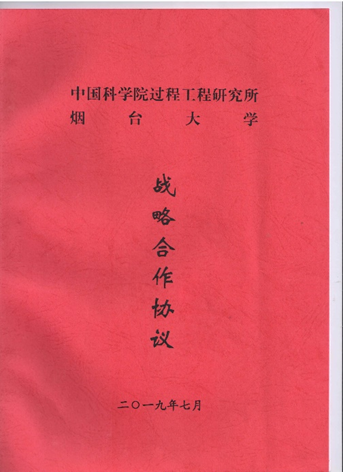 中国科学院过程工程研究所
烟台大学
战略合作协议
二〇一九年七月